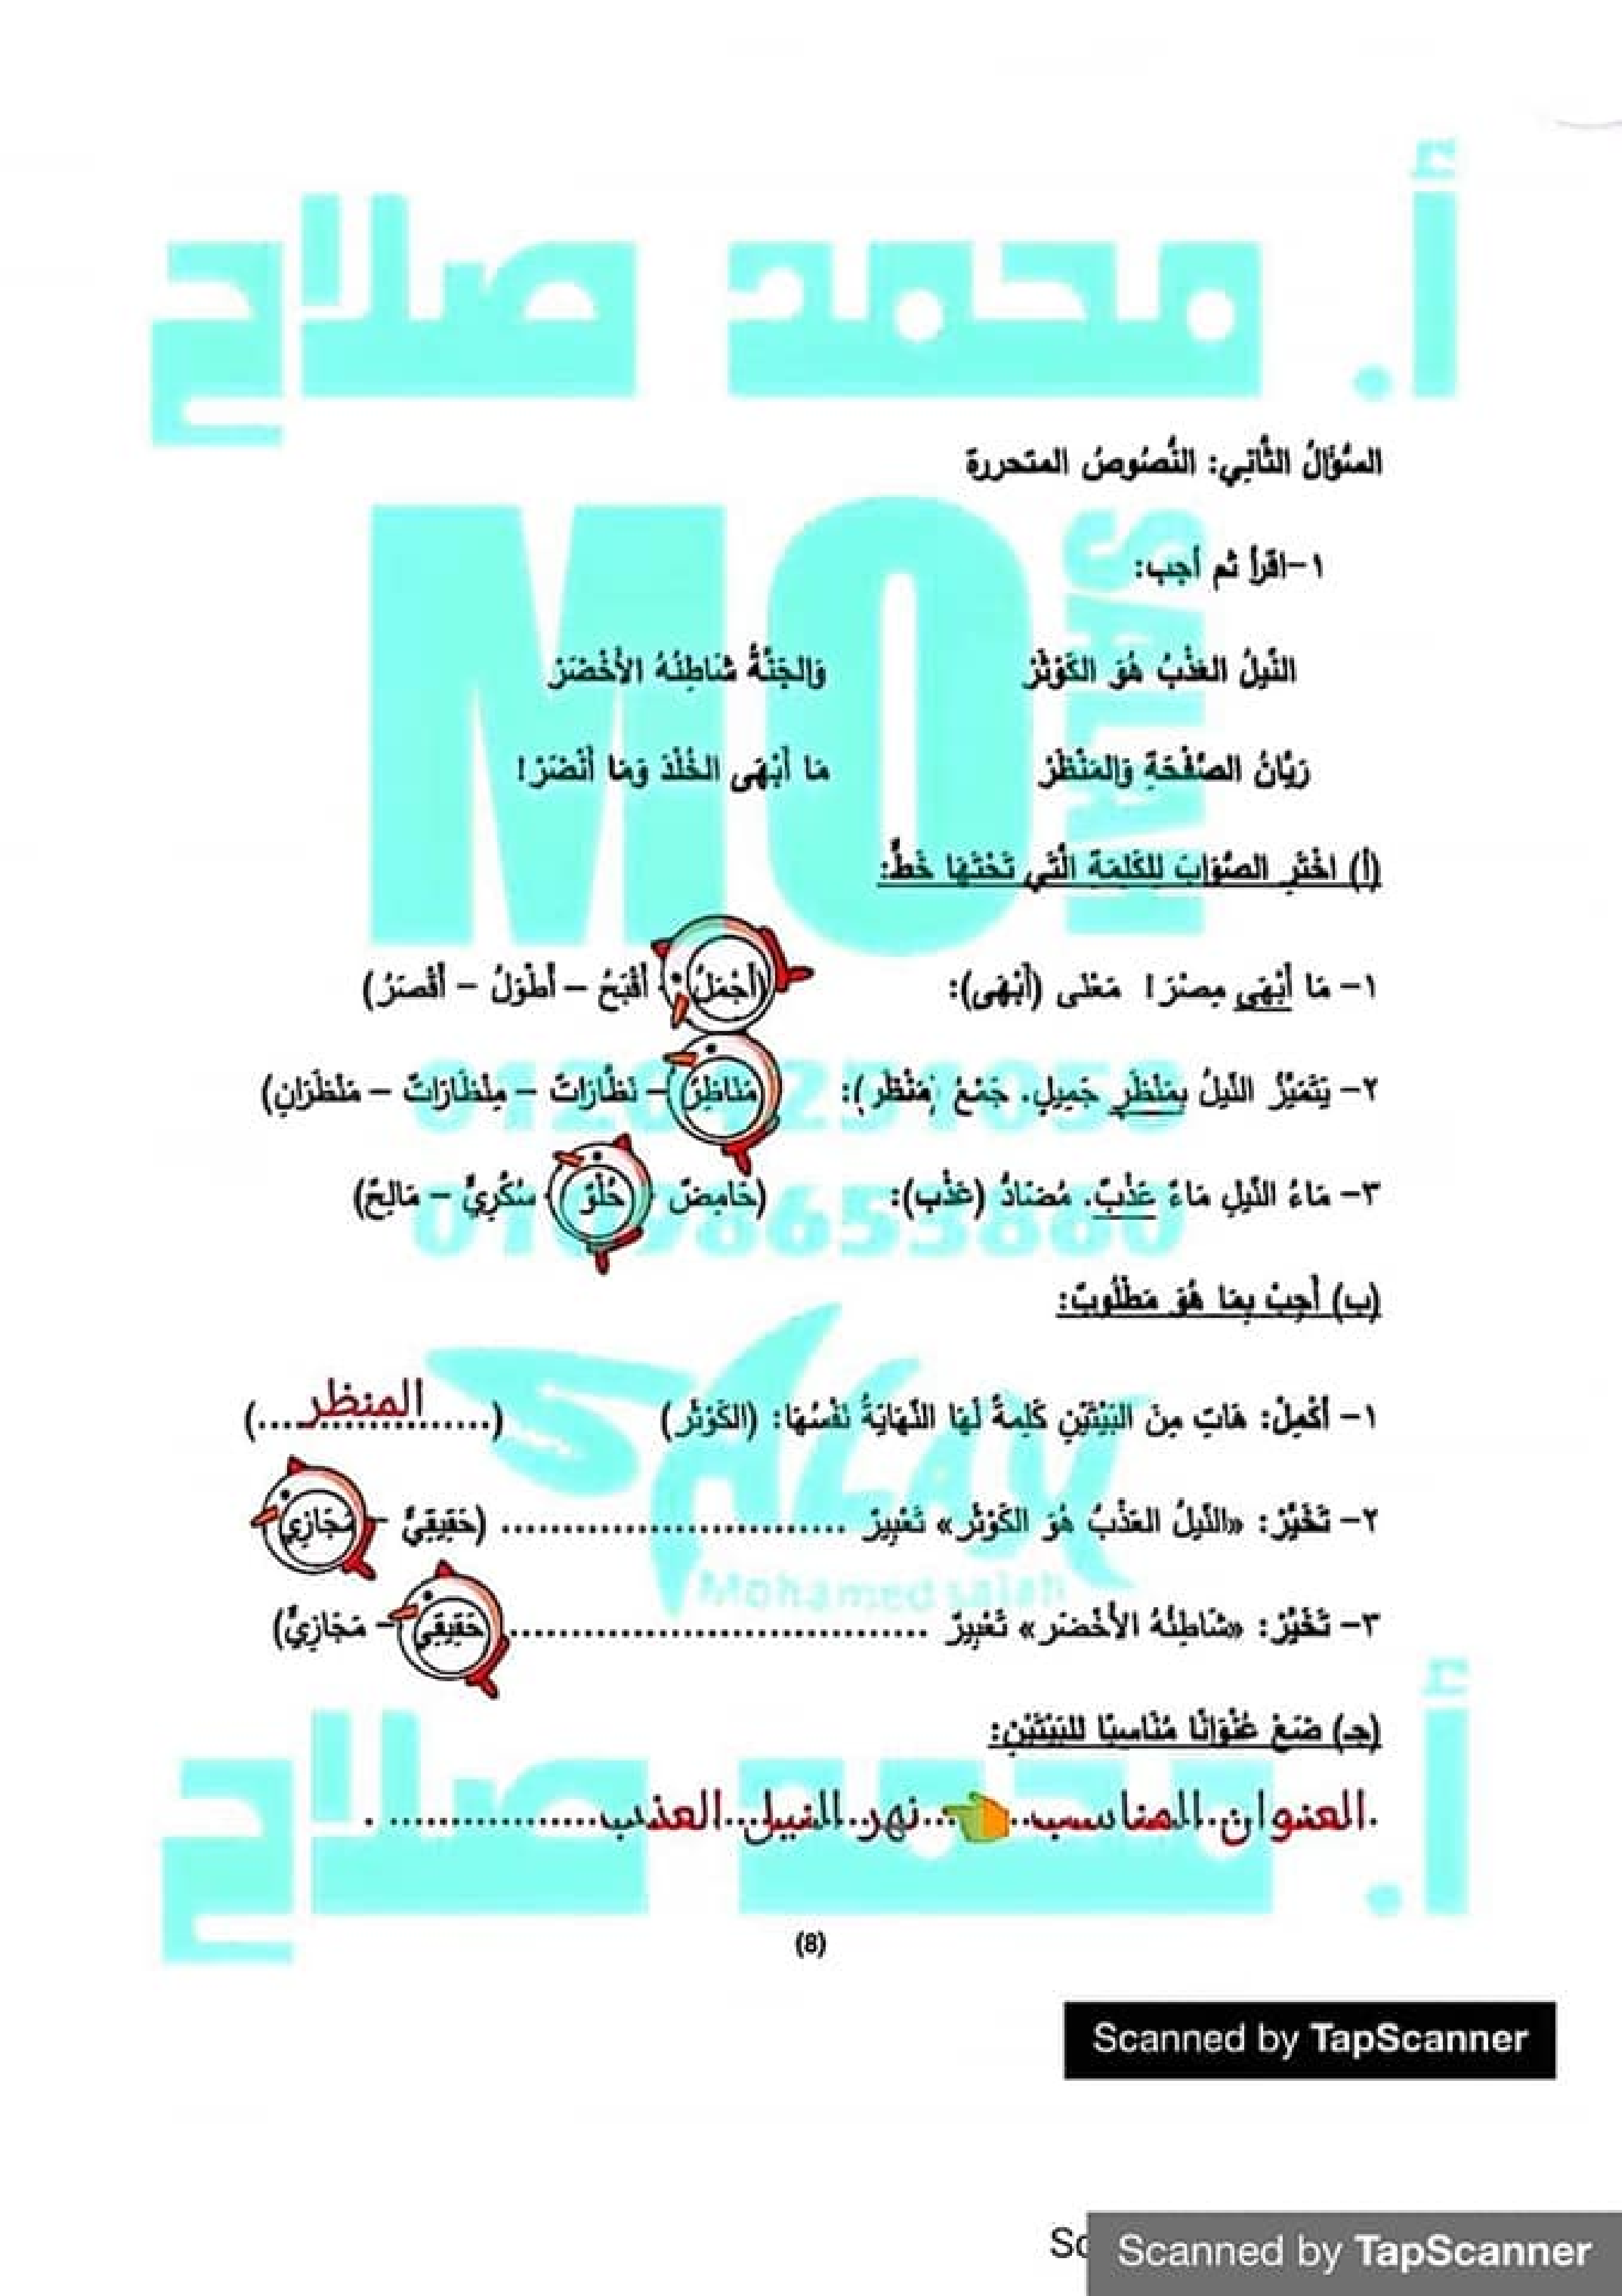 أ. محمد صلاح
السُّؤَالُ الثَّانِي: النُّصُوصُ المتحررة
١-اقْرَأ ثم أجب:
النِّيلُ العَذْبُ هُوَ الكَوْثَرْ وَالجَنَّةُ شَاطِئُهُ الأَخْضَرْ
رَيَّانُ الصَّفْحَةِ وَالمَنْظَرْ مَا أَبْهَى الخُلْدَ وَمَا أَنْضَرْ!
(أ) اخْتَرِ الصَّوَابَ لِلكَلِمَةِ الَّتِي تَحْتَهَا خَطٌّ:
١- مَا أَبْهَى مِصْرَ! مَعْنَى (أَبْهَى): (أَجْمَلُ - أَقْبَحُ – أَطْوَلُ – أَقْصَرُ)
٢- يَتَمَيَّزُ النِّيلُ بِمَنْظَرٍ جَمِيلٍ. جَمْعُ (مَنْظَر): (مَنَاظِرُ – نَظَّارَاتٌ – مِنْظَارَاتٌ – مَنْظَرَانِ)
٣- مَاءُ النِّيلِ مَاءٌ عَذْبٌ. مُضَادُّ (عَذْب): (حَامِضٌ - حُلْوٌ - سُكَّرِيٌّ – مَالِحٌ)
(ب) أَجِبْ بِمَا هُوَ مَطْلُوبٌ:
١- أَكْمِلْ: هَاتِ مِنَ البَيْتَيْنِ كَلِمَةً لَهَا النِّهَايَةُ نَفْسُهَا: (الكَوْثَر) (....المنظر....)
٢- تَخَيَّرْ: «النِّيلُ العَذْبُ هُوَ الكَوْثَر» تَعْبِيرٌ ............................ (حَقِيقِيٌّ – مَجَازِي
٣- تَخَيَّرْ: «شَاطِئُهُ الأَخْضَر» تَعْبِيرٌ .................................. حَقِيقِي – مَجَازِيٌّ)
(جـ) ضَعْ عُنْوَانًا مُنَاسِبًا للبَيْتَيْنِ:
العنوان المناسب نهر النيل العذب
Mohamed salah
أ. محمد صلاح
(8)
Scanned by TapScanner
Sc
Scanned by TapScanner
MO
SALAH
SALAH